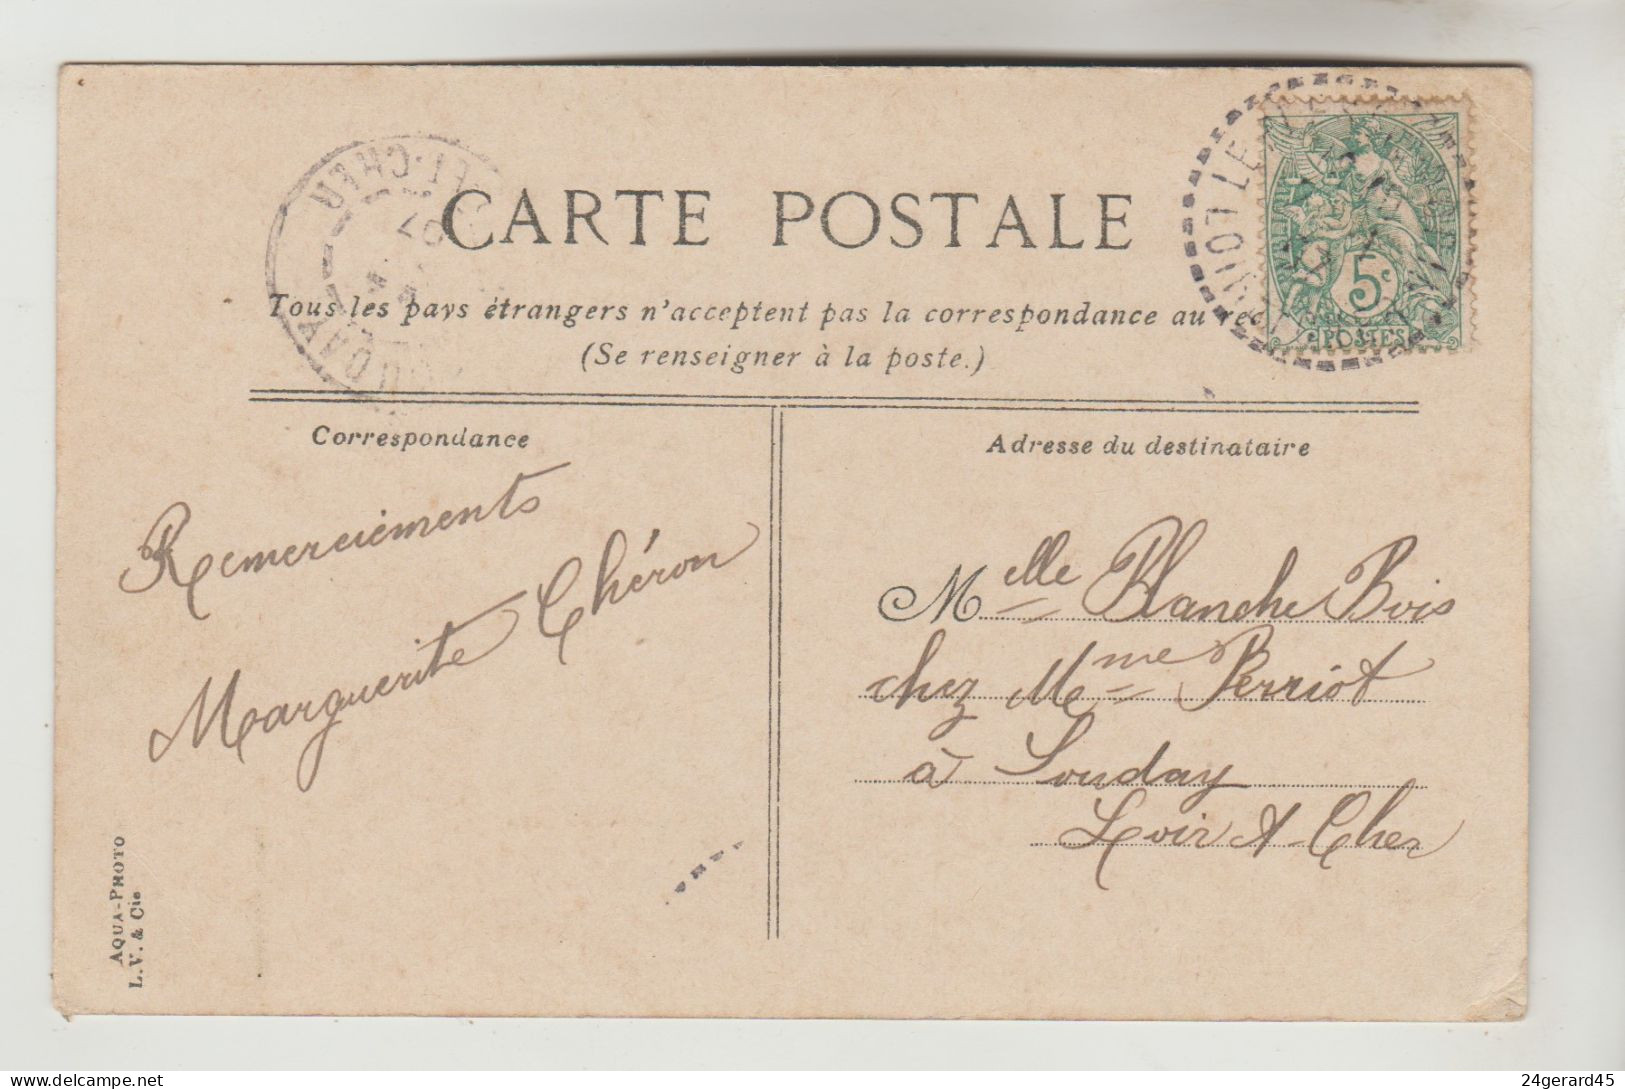 CARTE POSTALE
Tous les pays étrangers n'acceptent pas la correspondance au rec
(Se renseigner à la poste.)
Correspondance
Remerciements
Marguerite Chéron
Adresse du destinataire
Melle Blanche Bois
chez Mme Perriot
à Souday
Loir & Cher
AQUA-PHOTO
L.V. & Cie
5c
POSTES
24gerard45